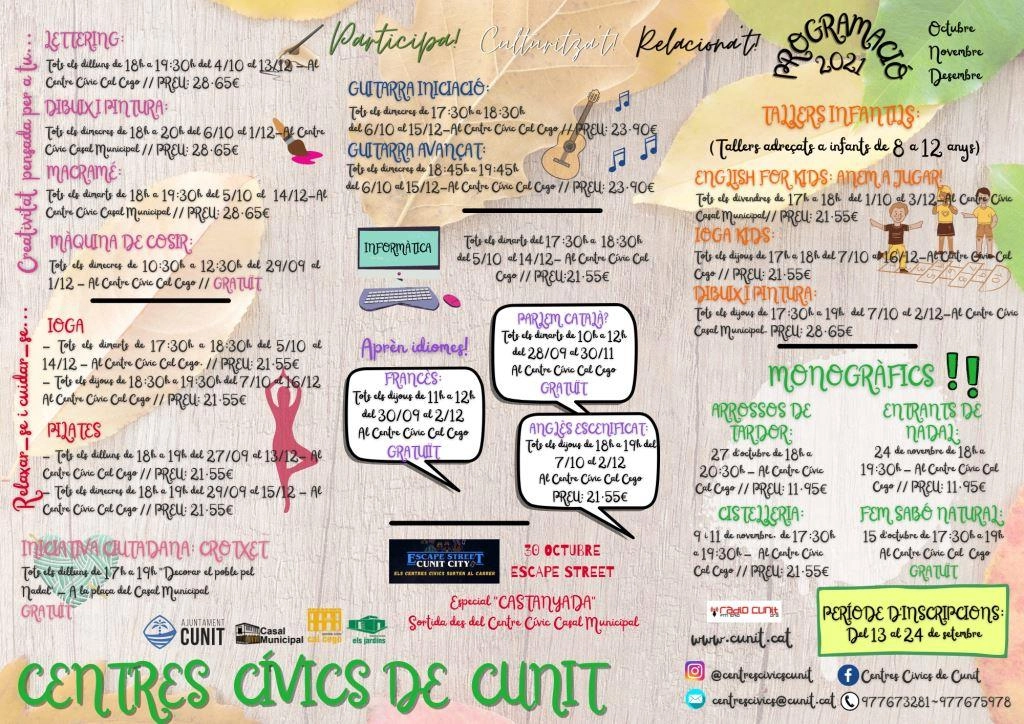 Participa! Culturitza't! Relaciona't!
PROGRAMACIÓ
2021
Octubre
Novembre
Desembre
Creativitat pensada per a tu...
LETTERING:
Tots els dilluns de 18h a 19:30h del 4/10 al 13/12 - Al
Centre Cívic Cal Cego // PREU: 28.65€
DIBUIX I PINTURA:
Tots els dimecres de 18h a 20h del 6/10 al 1/12-Al Centre
Cívic Casal Municipal // PREU: 28.65€
MACRAMÉ:
Tots els dimarts de 18h a 19:30h del 5/10 al 14/12-Al
Centre Cívic Casal Municipal // PREU: 28.65€
MÀQUINA DE COSIR:
Tots els dimecres de 10:30h a 12:30h del 29/09 al
1/12 - Al Centre Cívic Cal Cego // GRATUÏT
Relaxar-se i cuidar-se...
IOGA
- Tots els dimarts de 17:30h a 18:30h del 5/10 al
14/12 - Al Centre Cívic Cal Cego. // PREU: 21.55€
- Tots els dijous de 18:30h a 19:30h del 7/10 al 16/12
Al Centre Cívic Cal Cego // PREU: 21.55€
PILATES
- Tots els dilluns de 18h a 19h del 27/09 al 13/12- Al
Centre Cívic Cal Cego // PREU: 21.55€
- Tots els dimecres de 18h a 19h del 29/09 al 15/12 - Al
Centre Cívic Cal Cego // PREU: 21.55€
INICIATIVA CIUTADANA: CROTXET
Tots els dilluns de 17h a 19h "Decorar el poble pel
Nadal" - A la plaça del Casal Municipal
GRATUÏT
GUITARRA INICIACIÓ:
Tots els dimecres de 17:30h a 18:30h
del 6/10 al 15/12-Al Centre Cívic Cal Cego // PREU: 23.90€
GUITARRA AVANÇAT:
Tots els dimecres de 18:45h a 19:45h
del 6/10 al 15/12-Al Centre Cívic Cal Cego // PREU: 23.90€
INFORMÀTICA
Tots els dimarts del 17:30h a 18:30h
del 5/10 al 14/12- Al Centre Cívic Cal
Cego // PREU:21.55€
Aprèn idiomes!
PARLEM CATALÀ?
Tots els dimarts de 10h a 12h
del 28/09 al 30/11
Al Centre Cívic Cal Cego
GRATUÏT
FRANCÈS:
Tots els dijous de 11h a 12h
del 30/09 al 2/12
Al Centre Cívic Cal Cego
GRATUÏT
ANGLÈS ESCENIFICAT:
Tots els dijous de 18h a 19h del
7/10 al 2/12
Al Centre Cívic Cal Cego
PREU: 21.55€
ESCAPE STREET
CUNIT CITY
ELS CENTRES CÍVICS SORTEN AL CARRER
30 OCTUBRE
ESCAPE STREET
Especial "CASTANYADA"
Sortida des del Centre Cívic Casal Municipal
TALLERS INFANTILS:
(Tallers adreçats a infants de 8 a 12 anys)
ENGLISH FOR KIDS: ANEM A JUGAR!
Tots els divendres de 17h a 18h del 1/10 al 3/12-Al Centre Cívic
Casal Municipal// PREU: 21.55€
IOGA KIDS:
Tots els dijous de 17h a 18h del 7/10 al 16/12-Al Centre Cívic Cal
Cego // PREU: 21.55€
DIBUIX I PINTURA:
Tots els dijous de 17:30h a 19h del 7/10 al 2/12- Al Centre Cívic
Casal Municipal. PREU: 28.65€
MONOGRÀFICS !!
ARROSSOS DE
TARDOR:
27 d'octubre de 18h a
20:30h - Al Centre Cívic
Cal Cego // PREU: 11.95€
ENTRANTS DE
NADAL:
24 de novembre de 18h a
19:30h - Al Centre Cívic Cal
Cego // PREU: 11.95€
CISTELLERIA:
9 i 11 de novembre de 17:30h
a 19:30h - Al Centre Cívic
Cal Cego // PREU: 21.55€
FEM SABÓ NATURAL:
15 d'octubre de 17:30h a 19h
Al Centre Cívic Cal Cego
GRATUÏT
AJUNTAMENT
CUNIT
Casal
Municipal
cal cego
els jardins
CENTRES CÍVICS DE CUNIT
ràdio cunit
www.cunit.cat
PERÍODE D'INSCRIPCIONS:
Del 13 al 24 de setembre
@centrescivicscunit
Centres Cívics de Cunit
centrescivics@cunit.cat
977673281-977675978